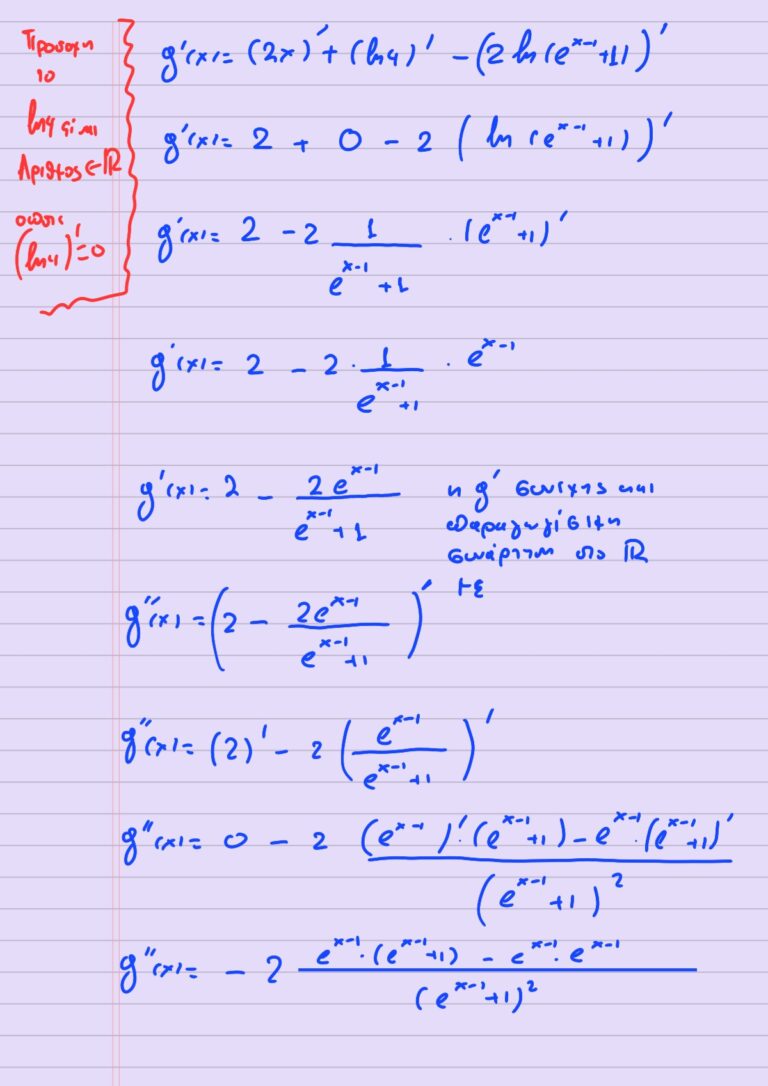 Προσοχη
το
ln4 είναι
Αριθμος ∈ ℝ
οποτε
(ln4)'=0
g'(x)= (2x)' + (ln4)' - (2 ln(e^{x-1}+1))'
g'(x)= 2 + 0 - 2 (ln(e^{x-1}+1))'
g'(x)= 2 - 2 \frac{1}{e^{x-1}+1} · (e^{x-1}+1)'
g'(x)= 2 - 2 · \frac{1}{e^{x-1}+1} · e^{x-1}
g'(x)= 2 - \frac{2e^{x-1}}{e^{x-1}+1}
η g' συνεχης και
παραγωγίσιμη
συνάρτηση στο ℝ
με
g''(x)=(2 - \frac{2e^{x-1}}{e^{x-1}+1})'
g''(x)= (2)' - 2 (\frac{e^{x-1}}{e^{x-1}+1})'
g''(x)= 0 - 2 \frac{(e^{x-1})'·(e^{x-1}+1) - e^{x-1}·(e^{x-1}+1)'}{(e^{x-1}+1)^2}
g''(x)= - 2 \frac{e^{x-1}·(e^{x-1}+1) - e^{x-1}·e^{x-1}}{(e^{x-1}+1)^2}